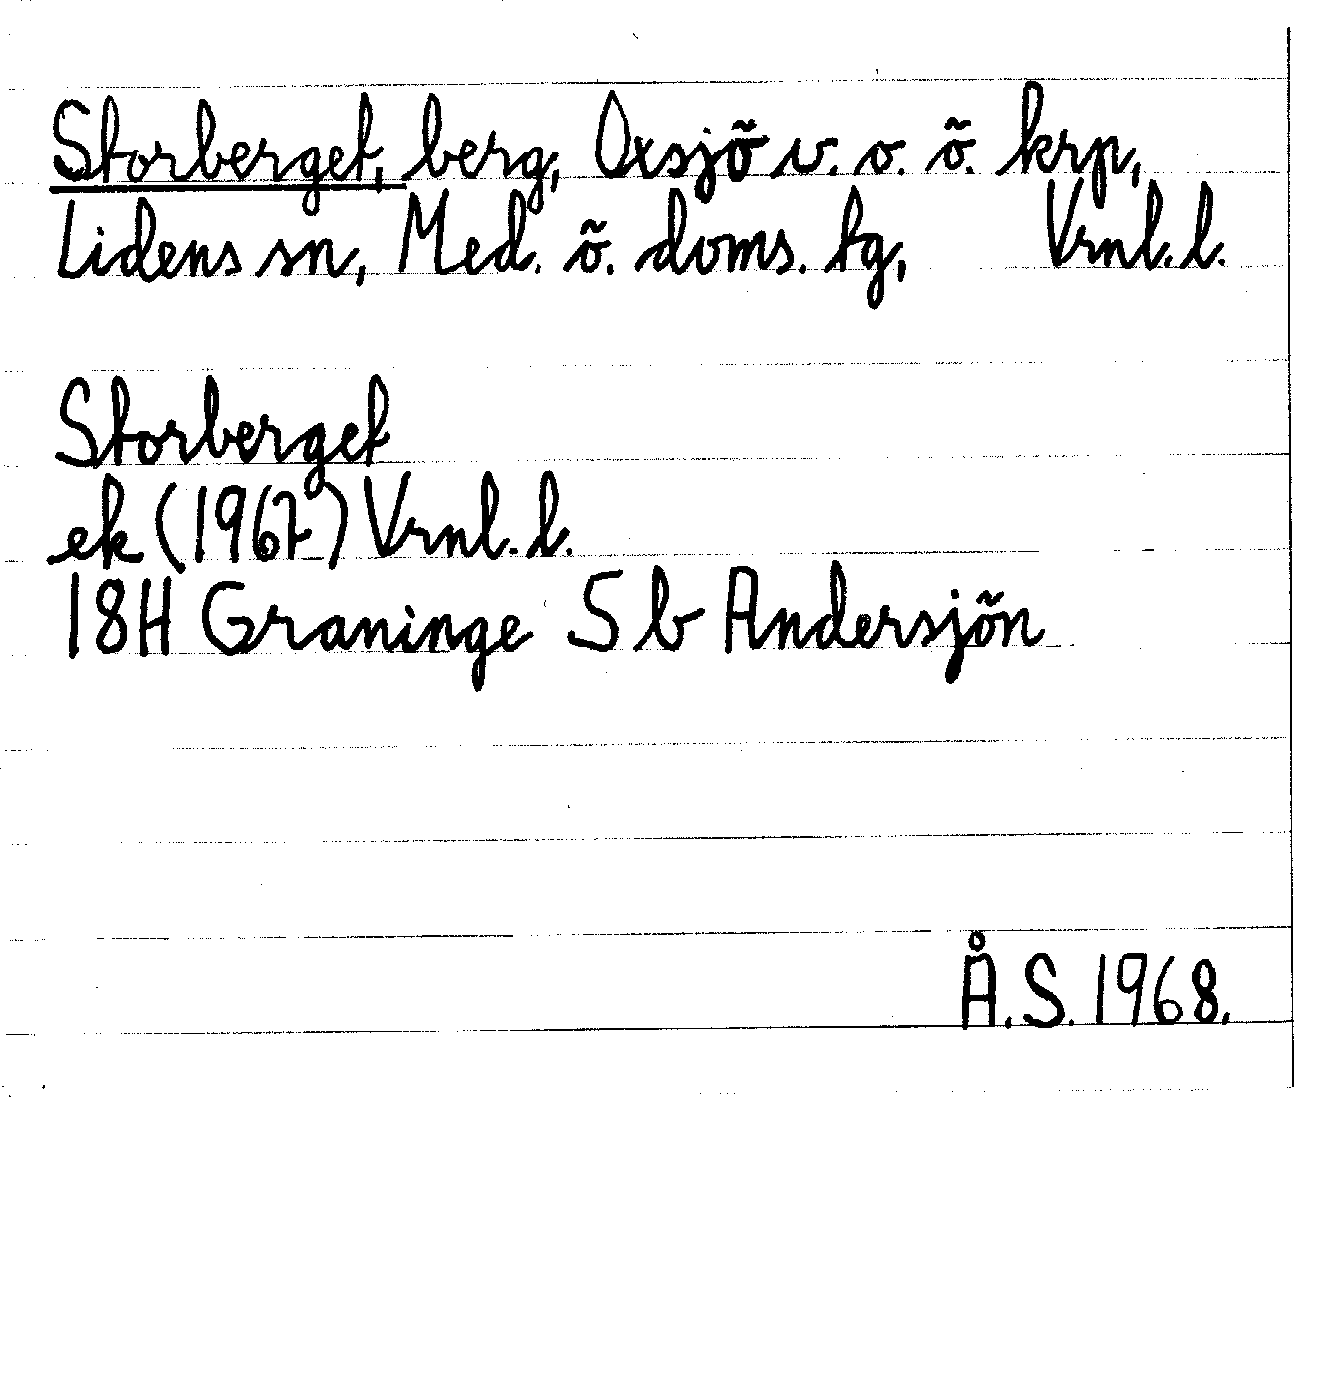 Storberget, berg, Oxsjö v. o. ö. krp,
Lidens sn, Med. ö. doms. tg, Vrnl. l.
Storberget
ek (1967) Vrnl. l.
18H Graninge S b Andersjön
Å. S. 1968.